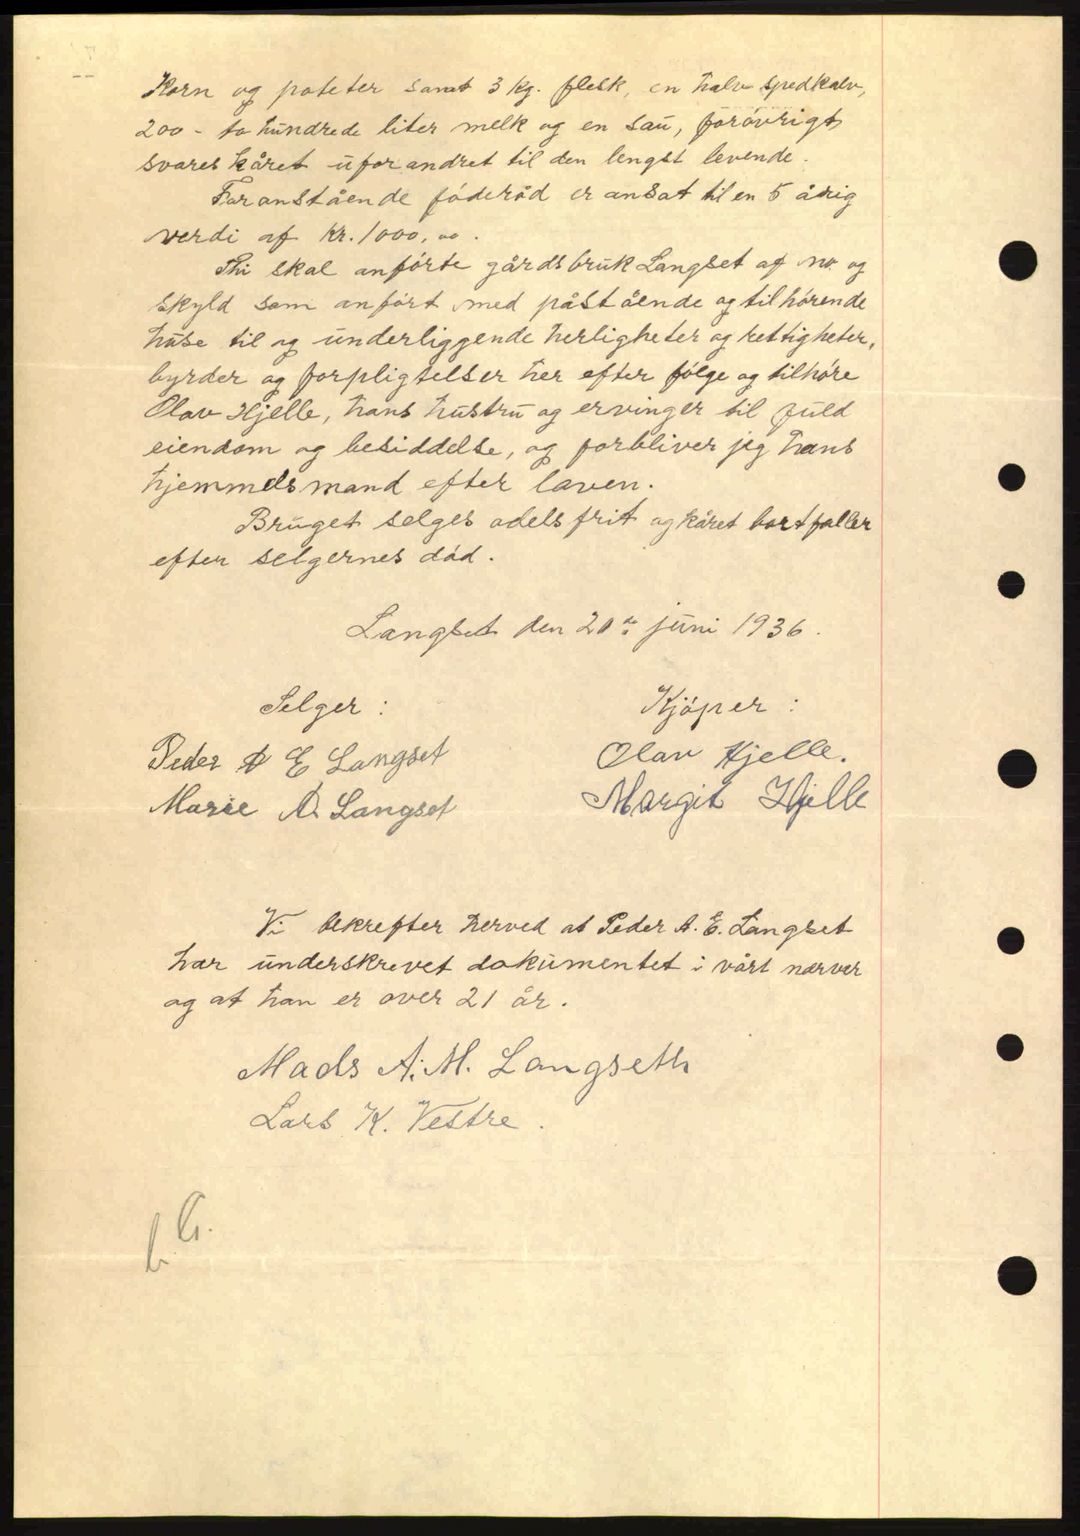 Korn og poteter samt 3 kg. flesk, en halv spedkalv,
200 - to hundrede liter melk og en sau, forøvrigt
svares kåret uforandret til den lengst levende.
Foranstående føderåd er ansat til en 5 årig
verdi af kr. 1000,00.
Thi skal anførte gårdsbruk Langset af no. og
skyld som anført med påstående og tilhørende
huse til og underliggende herligheter og rettigheter,
byrder og forpligtelser her efter følge og tilhøre
Olav Hjelle, hans hustru og ervinger til fuld
eiendom og besiddelse, og forbliver jeg hans
hjemmelsmand efter loven.
Bruget selges odelsfrit og kåret bortfaller
efter selgernes død.
Langset den juni 1936.
Selger : Kjöper :
Peder E Langset Olav Hjelle.
Marie Langset Margit Hjelle
Vi bekrefter herved at Peder A. E. Langset
har underskrevet dokumentet i vårt nærver
og at han er over 21 år.
Mads A. M. Langseth
Lars K. Vestre.